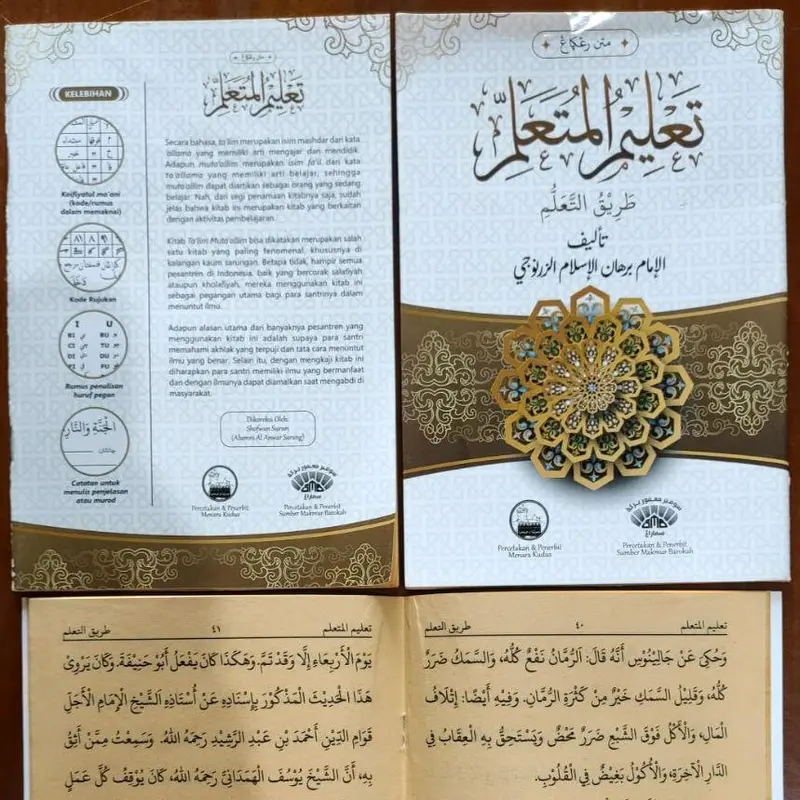 متن رڠكاڠ
تعليم المتعلم
KELEBIHAN
Kaifiyatul ma'ani
(kode/rumus
dalam memaknai)
Kode Rujukan
I U
BI BU
CI TU
DI DU
FI
Rumus penulisan
huruf pegon
الجنة والنار
Catatan untuk
menulis penjelasan
atau murod
Secara bahasa, ta'lim merupakan isim mashdar dari kata
'allama yang memiliki arti mengajar dan mendidik.
Adapun muta'allim merupakan isim fa'il dari kata
ta'allama yang memiliki arti belajar, sehingga
muta'allim dapat diartikan sebagai orang yang sedang
belajar. Nah, dari segi penamaan kitabnya saja, sudah
jelas bahwa kitab ini merupakan kitab yang berkaitan
dengan aktivitas pembelajaran.
Kitab Ta'lim Muta'allim bisa dikatakan merupakan salah
satu kitab yang paling fenomenal, khususnya di
kalangan kaum sarungan. Betapa tidak, hampir semua
pesantren di Indonesia, baik yang bercorak salafiyah
ataupun kholafiyah, mereka menggunakan kitab ini
sebagai pegangan utama bagi para santrinya dalam
menuntut ilmu.
Adapun alasan utama dari banyaknya pesantren yang
menggunakan kitab ini adalah supaya para santri
memahami akhlak yang terpuji dan tata cara menuntut
ilmu yang benar. Selain itu, dengan mengkaji kitab ini
diharapkan para santri memiliki ilmu yang bermanfaat
dan dengan ilmunya dapat diamalkan saat mengabdi di
masyarakat.
Dikoreksi Oleh:
Shofwan Surun
(Alumni Al Anwar Sarang)
Percetakan & Penerbit
Menara Kudus
Percetakan & Penerbit
Sumber Makmur Barokah
متن رڠكاڠ
تَعْلِيمُ الْمُتَعَلِّمِ
طَرِيْقُ التَّعَلُّمِ
تأليف
الإمام برهان الإسلام الزرنوجي
Percetakan & Penerbit
Menara Kudus
Percetakan & Penerbit
Sumber Makmur Barokah
تعليم المتعلم ٤٠ طريق التعلم
وَحُكِيَ عَنْ جَالِيْنُوْسَ أَنَّهُ قَالَ: اَلرُّمَّانُ نَفْعٌ كُلُّهُ، وَالسَّمَكُ ضَرَرٌ
كُلُّهُ، وَقَلِيْلُ السَّمَكِ خَيْرٌ مِنْ كَثْرَةِ الرُّمَّانِ. وَفِيْهِ أَيْضًا: إِتْلَافُ
الْمَالِ، وَالْأَكْلُ فَوْقَ الشِّبَعِ ضَرَرٌ مَحْضٌ وَيَسْتَحِقُّ بِهِ الْعِقَابُ فِي
الدَّارِ الْآخِرَةِ، وَالْأَكُوْلُ بَغِيْضٌ فِي الْقُلُوْبِ.
تعليم المتعلم ٤١ طريق التعلم
يَوْمَ الْأَرْبِعَاءِ إِلَّا وَقَدْ تَمَّ. وَهٰكَذَا كَانَ يَفْعَلُ أَبُوْ حَنِيْفَةَ. وَكَانَ يَرْوِيْ
هٰذَا الْحَدِيْثَ الْمَذْكُوْرَ بِإِسْنَادِهِ عَنْ أُسْتَاذِهِ الشَّيْخِ الْإِمَامِ الْأَجَلِّ
قَوَامِ الدِّيْنِ أَحْمَدَ بْنِ عَبْدِ الرَّشِيْدِ رَحِمَهُ اللهُ. وَسَمِعْتُ مِمَّنْ أَثِقُ
بِهِ، أَنَّ الشَّيْخَ يُوْسُفَ الْهَمْدَانِيَّ رَحِمَهُ اللهُ، كَانَ يُوْقِفُ كُلَّ عَمَلٍ